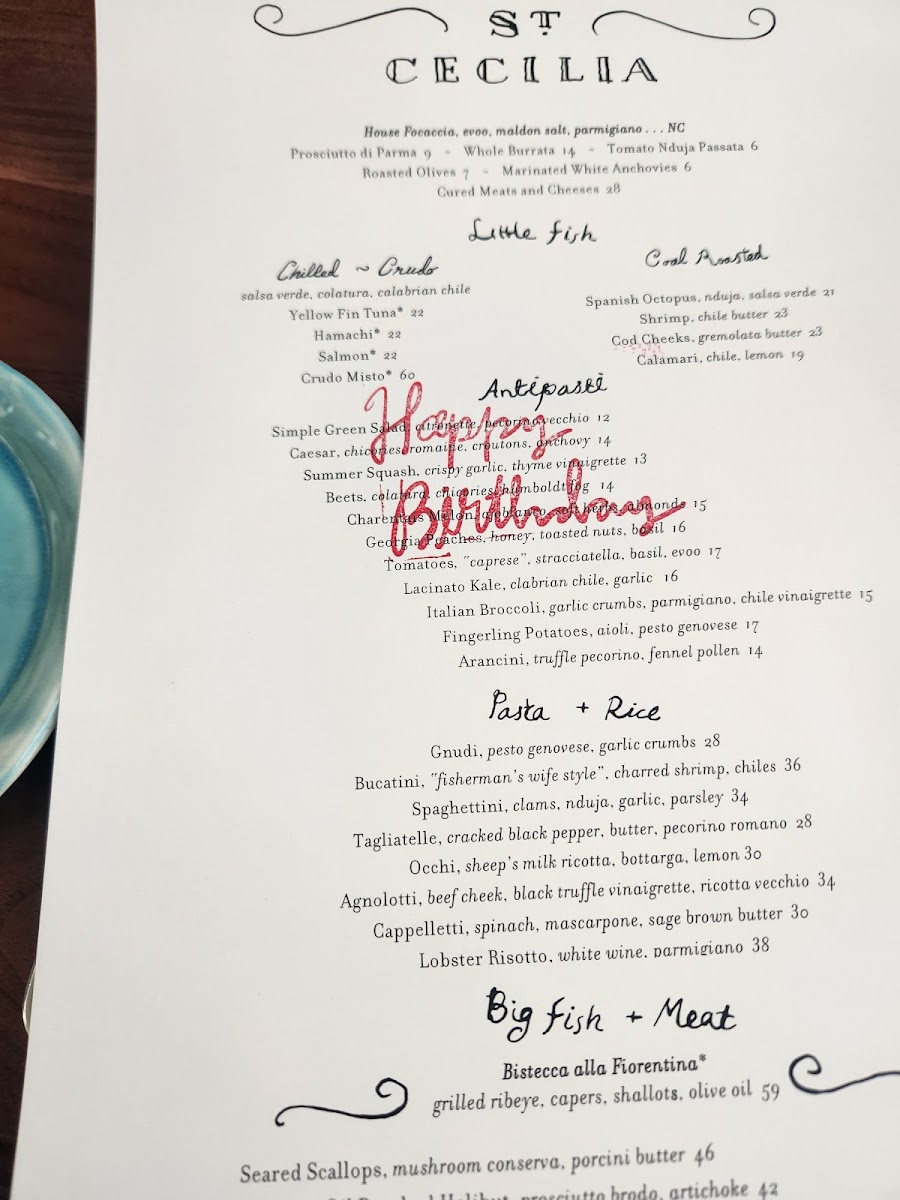 ST
CECILIA
House Focaccia, evoo, maldon salt, parmigiano . . . NC
Prosciutto di Parma 9 - Whole Burrata 14 - Tomato Nduja Passata 6
Roasted Olives 7 - Marinated White Anchovies 6
Cured Meats and Cheeses 28
Little fish
Chilled ~ Crudo
salsa verde, colatura, calabrian chile
Yellow Fin Tuna* 22
Hamachi* 22
Salmon* 22
Crudo Misto* 60
Coal Roasted
Spanish Octopus, nduja, salsa verde 21
Shrimp, chile butter 23
Cod Cheeks, gremolata butter 23
Calamari, chile, lemon 19
Antipasti
Happy
Birthday
Simple Green Salad, citronette, pecorino vecchio 12
Caesar, chicories, romaine, croutons, anchovy 14
Summer Squash, crispy garlic, thyme vinaigrette 13
Beets, colatura, chicories, humboldt fog 14
Charentais Melon, ajoblanco, soft herbs, almonds 15
Georgia Peaches, honey, toasted nuts, basil 16
Tomatoes, "caprese", stracciatella, basil, evoo 17
Lacinato Kale, clabrian chile, garlic 16
Italian Broccoli, garlic crumbs, parmigiano, chile vinaigrette 15
Fingerling Potatoes, aioli, pesto genovese 17
Arancini, truffle pecorino, fennel pollen 14
Pasta + Rice
Gnudi, pesto genovese, garlic crumbs 28
Bucatini, "fisherman's wife style", charred shrimp, chiles 36
Spaghettini, clams, nduja, garlic, parsley 34
Tagliatelle, cracked black pepper, butter, pecorino romano 28
Occhi, sheep's milk ricotta, bottarga, lemon 30
Agnolotti, beef cheek, black truffle vinaigrette, ricotta vecchio 34
Cappelletti, spinach, mascarpone, sage brown butter 30
Lobster Risotto, white wine, parmigiano 38
Big fish + Meat
Bistecca alla Fiorentina*
grilled ribeye, capers, shallots, olive oil 59
Seared Scallops, mushroom conserva, porcini butter 46
Halibut, prosciutto brodo, artichoke 42